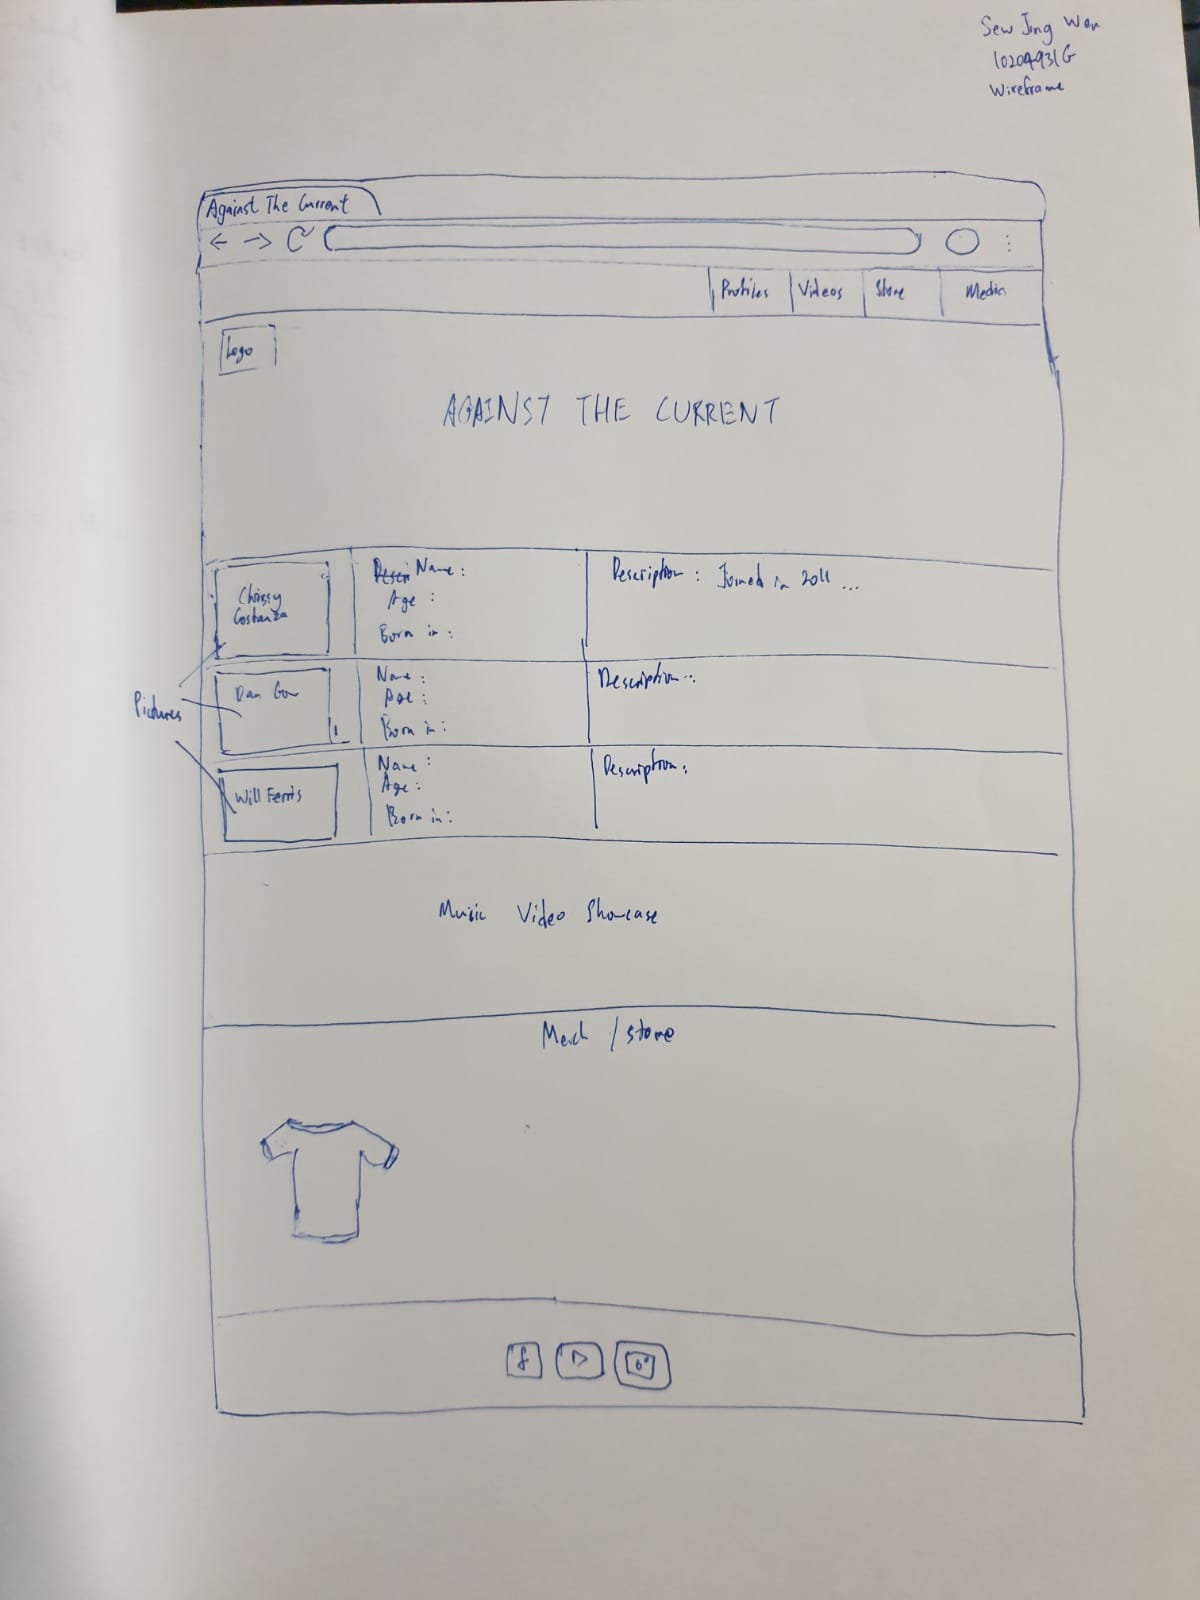 Sew Jing Wen
10204931G
Wireframe
Against The Current
Profiles Videos Store Media
Logo
AGAINST THE CURRENT
Chrissy
Costanza
Name :
Age :
Born in :
Description : Joined in 2011 ...
Pictures
Dan Gow
Name :
Age :
Born in :
Description ..
Will Ferris
Name :
Age :
Born in :
Description :
Music Video Showcase
Merch / store
f